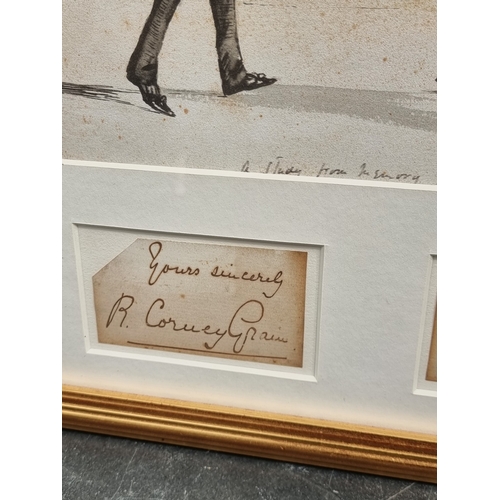 A study from memory
Yours sincerely
R. Corney Grain